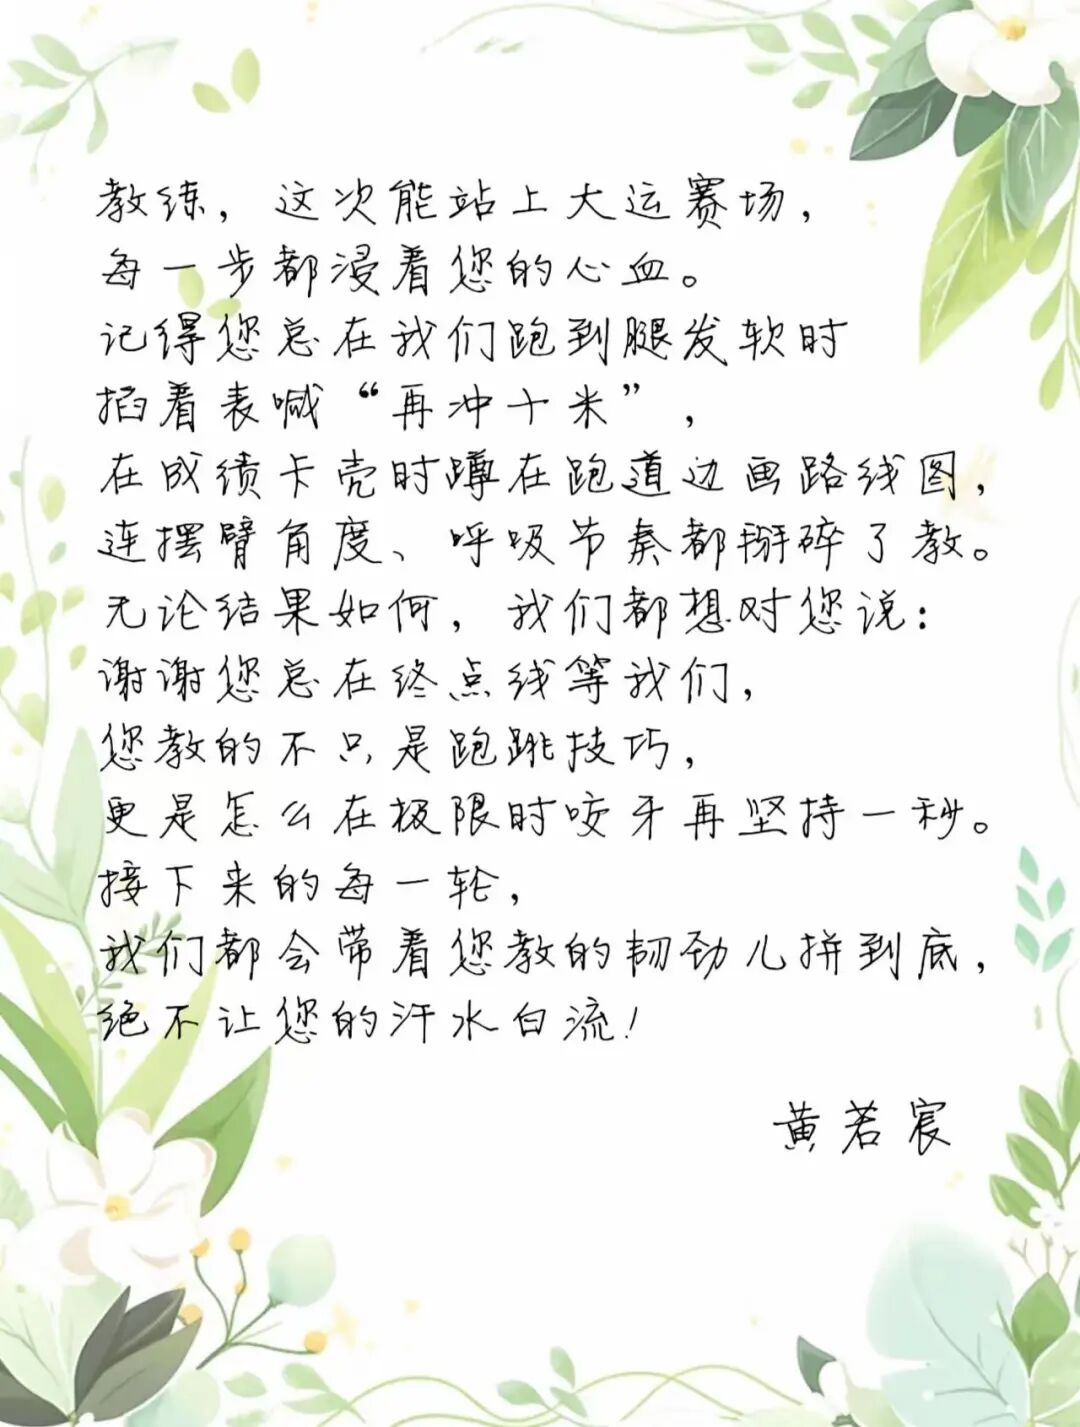 教练，这次能站上大运赛场，
每一步都浸着您的心血。
记得您总在我们跑到腿发软时
掐着表喊“再冲十米”，
在成绩卡壳时蹲在跑道边画路线图，
连摆臂角度、呼吸节奏都掰碎了教。
无论结果如何，我们都想对您说：
谢谢您总在终点线等我们，
您教的不只是跑跳技巧，
更是怎么在极限时咬牙再坚持一秒。
接下来的每一轮，
我们都会带着您教的韧劲儿拼到底，
绝不让您的汗水白流！
黄若宸